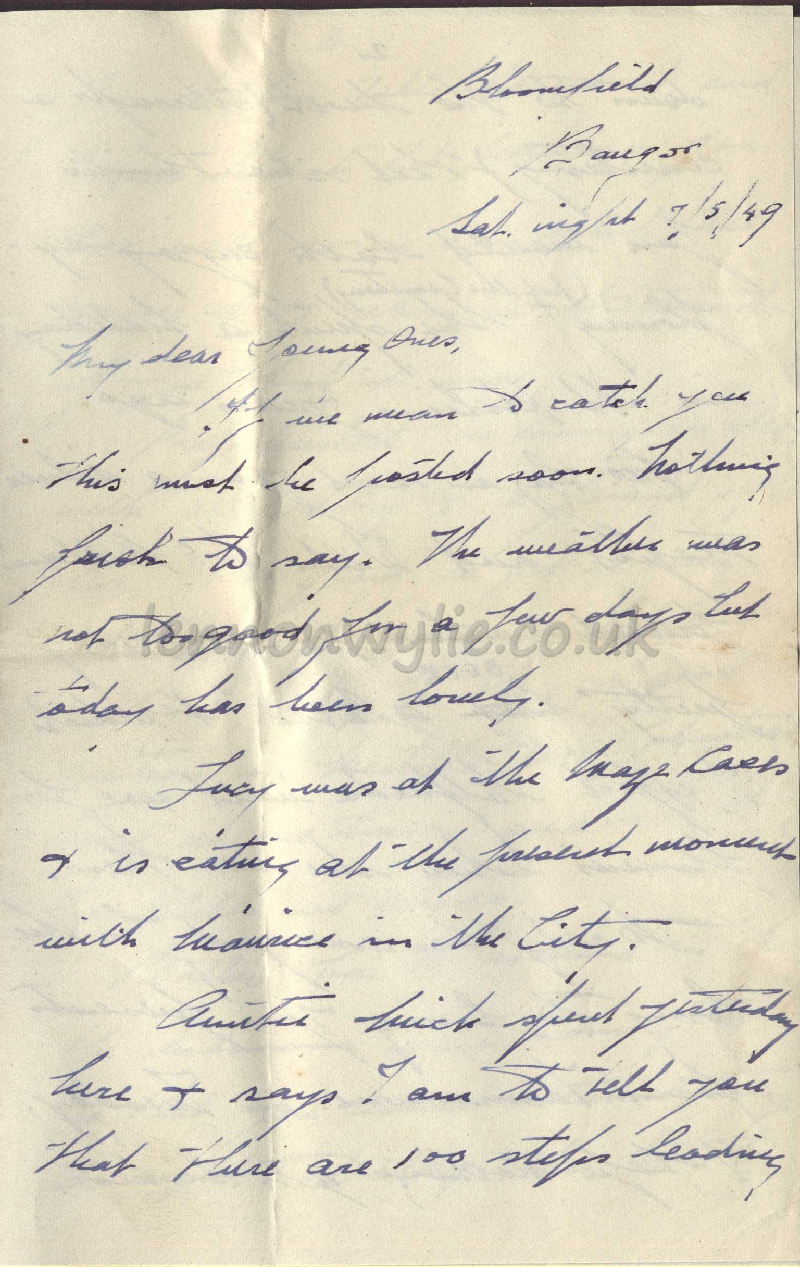 Bloomfield
Bangor
Sat. night 7/5/49
My dear Young Ones,
If we mean to catch you
this must be posted soon. Nothing
fresh to say. The weather was
not too good for a few days but
lennonwylie.co.uk
today has been lovely.
Lucy was at the Maze Races
& is eating at the present moment
with Maurice in the City.
Auntie Mick spent yesterday
here & says I am to tell you
that there are 100 steps leading